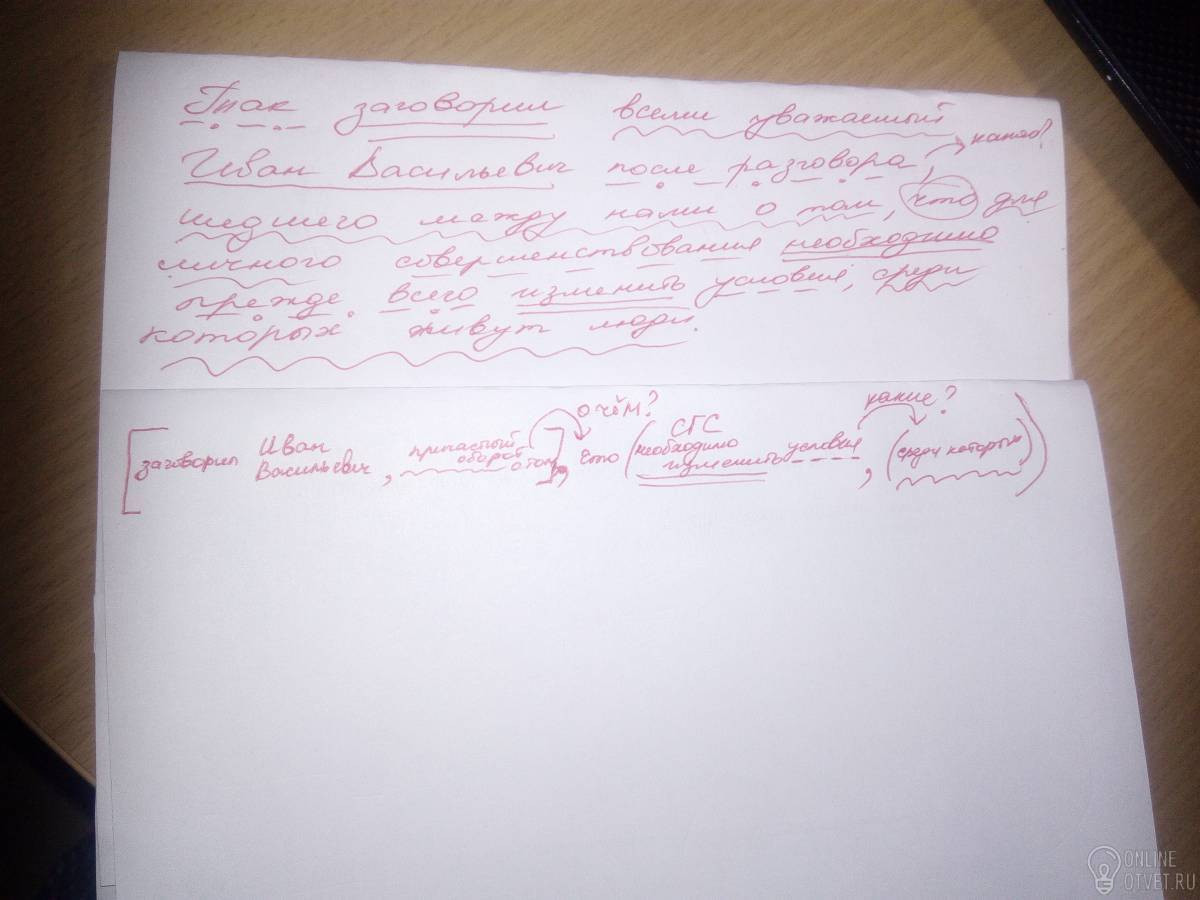 Так заговорил всеми уважаемый
Иван Васильевич после разговора, какого?
шедшего между нами о том, что для
личного совершенствования необходимо
прежде всего изменить условия, среди
которых живут люди.
о чём? какие?
[заговорил Иван Васильевич, причастный оборот о том], что (СГС необходимо изменить условия, (среди которых))
ONLINE
OTVET.RU